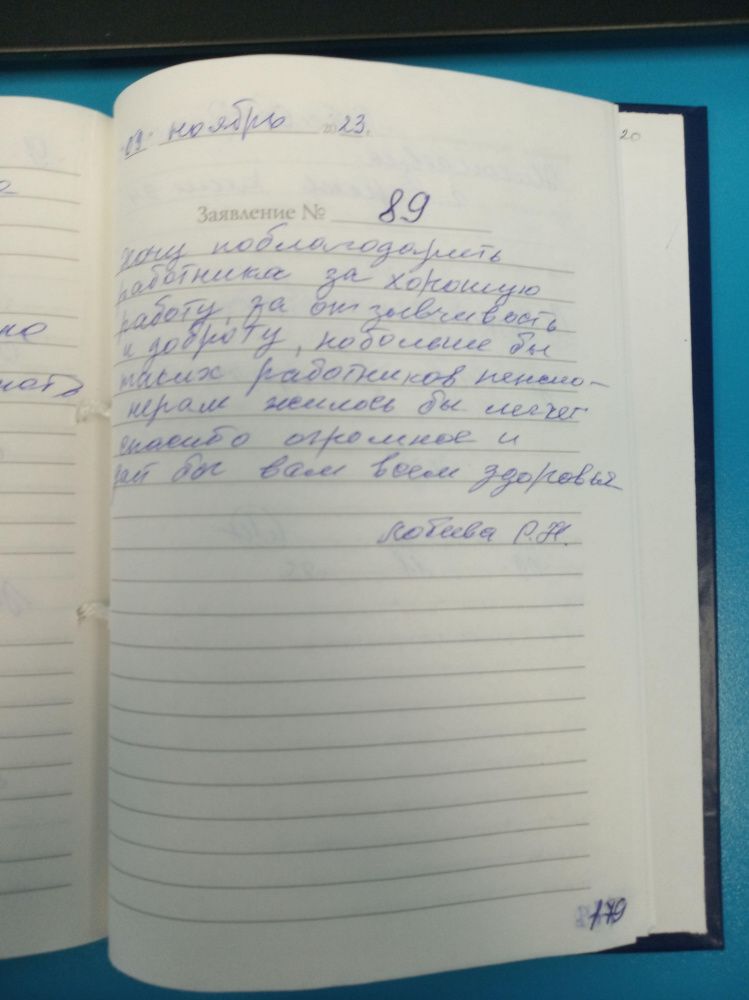 "09" ноября 2023 г.
Заявление № 89
хочу поблагодарить
работника за хорошую
работу, за отзывчивость
и доброту, побольше бы
таких работников пенсио-
нерам жилось бы легче
спасибо огромное и
дай бог вам всем здоровья
Р.Н.
179
20